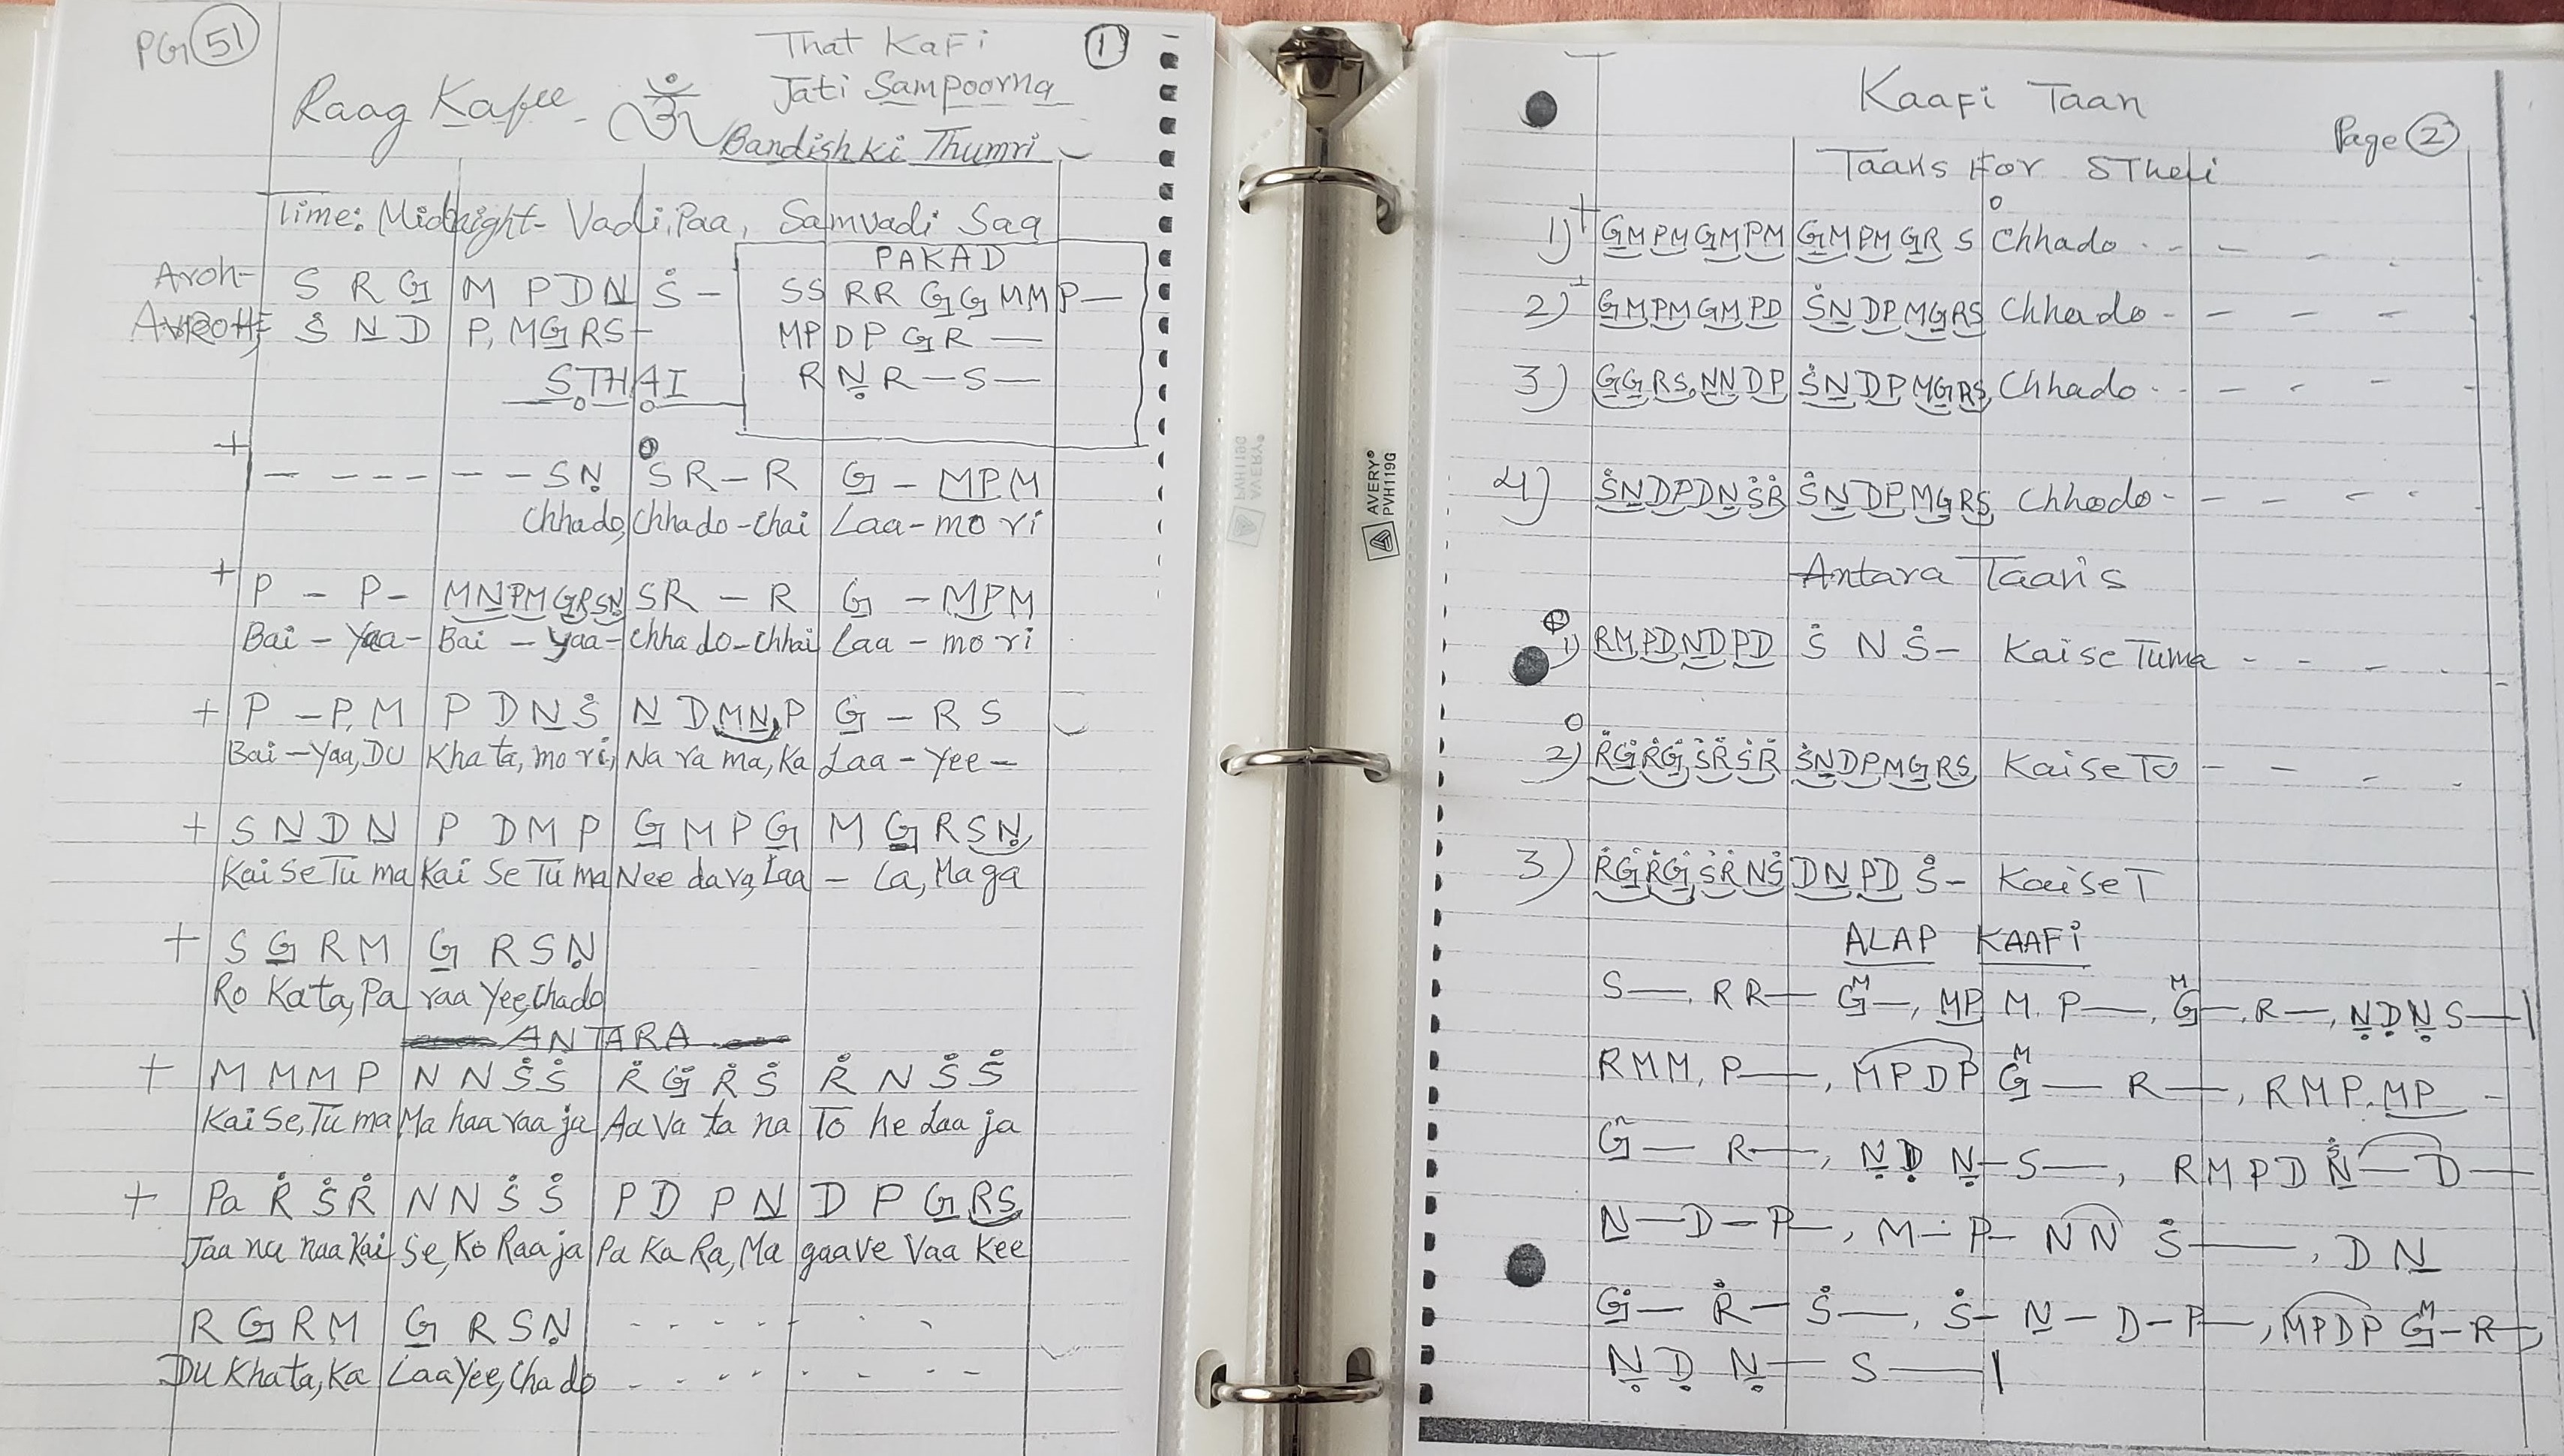 PG 51
That Kafi
1
Jati Sampoorna
Raag Kafee - ॐ
Bandish ki Thumri
Time: Midnight- Vadi, Paa, Samvadi Saa
PAKAD
Aroh- S R G̲ M P D N̲ Ṡ -
SS RR G̲G̲ MM P—
AVROH; Ṡ N̲ D P, M G̲ R S -
MP DP G̲ R —
R Ṇ̲ R — S —
STHAI
+ - - - - - - - S Ṇ̲ S R - R G̲ - MPM
Chhado, Chhado - chai Laa - mo ri
+ P - P - MN̲PMG̲RSṆ̲ SR - R G̲ - MPM
Bai - Yaa - Bai - Yaa - Chhado - Chhai Laa - mo ri
+ P - P, M P D N̲ Ṡ N̲ D MN̲, P G̲ - R S
Bai - Yaa, Du Kha ta, mo ri, Na ra ma, Ka Laa - Yee -
+ S N̲ D N̲ P D M P G̲ M P G̲ M G̲ R SṆ̲
Kai Se Tu ma Kai Se Tu ma Nee dara, Laa - La, Maga
+ S G̲ R M G̲ R S Ṇ̲
Ro Kata, Pa raa Yee, Chado
ANTARA
+ M M M P N N Ṡ Ṡ Ṙ Ġ̲ Ṙ Ṡ Ṙ N Ṡ Ṡ
Kai Se, Tu ma Ma haa raa ja Aa Va ta na To he Laa ja
+ Pa Ṙ Ṡ Ṙ N N Ṡ Ṡ P D P N̲ D P G̲ RS
Jaa na naa Kai Se, Ko Raa ja Pa Ka Ra, Ma gaave Vaa Kee
R G̲ R M G̲ R S Ṇ̲ - - - - - - -
Du Khata, Ka Laa Yee, Cha do - - - - - - - -
AVERY®
PVH119G
Kaafi Taan
Page 2
Taans For SThai
1) + G̲MPMG̲MPM G̲MPMG̲R S o Chhado - - - - -
2) + G̲MPMG̲MPD ṠN̲DPMG̲RS Chhado - - - - -
3) G̲G̲RS, N̲N̲DP ṠN̲DPMG̲RS, Chhado - - - - -
4) ṠN̲DPDN̲ṠṘ ṠN̲DPMG̲RS, Chhodo - - - - -
Antara Taans
1) RMPDN̲DPD Ṡ N Ṡ - Kai se Tuma - - - -
o
2) ṘĠ̲ṘĠ̲, ṠṘṠṘ ṠN̲DPMG̲RS, Kai se To - - - -
3) ṘĠ̲ṘĠ̲, ṠṘNṠ DN̲PD Ṡ - Kai se T
ALAP KAAFI
S —, R R — ᴹG̲ —, MP M P —, ᴹG̲ —, R —, Ṇ̲ Ḍ Ṇ̲ S — |
R M M, P —, MPDP ᴹG̲ — R —, R M P, MP -
ᴹG̲ — R —, Ṇ̲ Ḍ Ṇ̲ - S —, R M P D ˢN̲ — D —
N̲ — D - P —, M - P - N N Ṡ —, D N̲
Ġ̲ — Ṙ - Ṡ —, Ṡ - N̲ - D - P —, MPDP ᴹG̲ - R -,
Ṇ̲ Ḍ Ṇ̲ - S — |